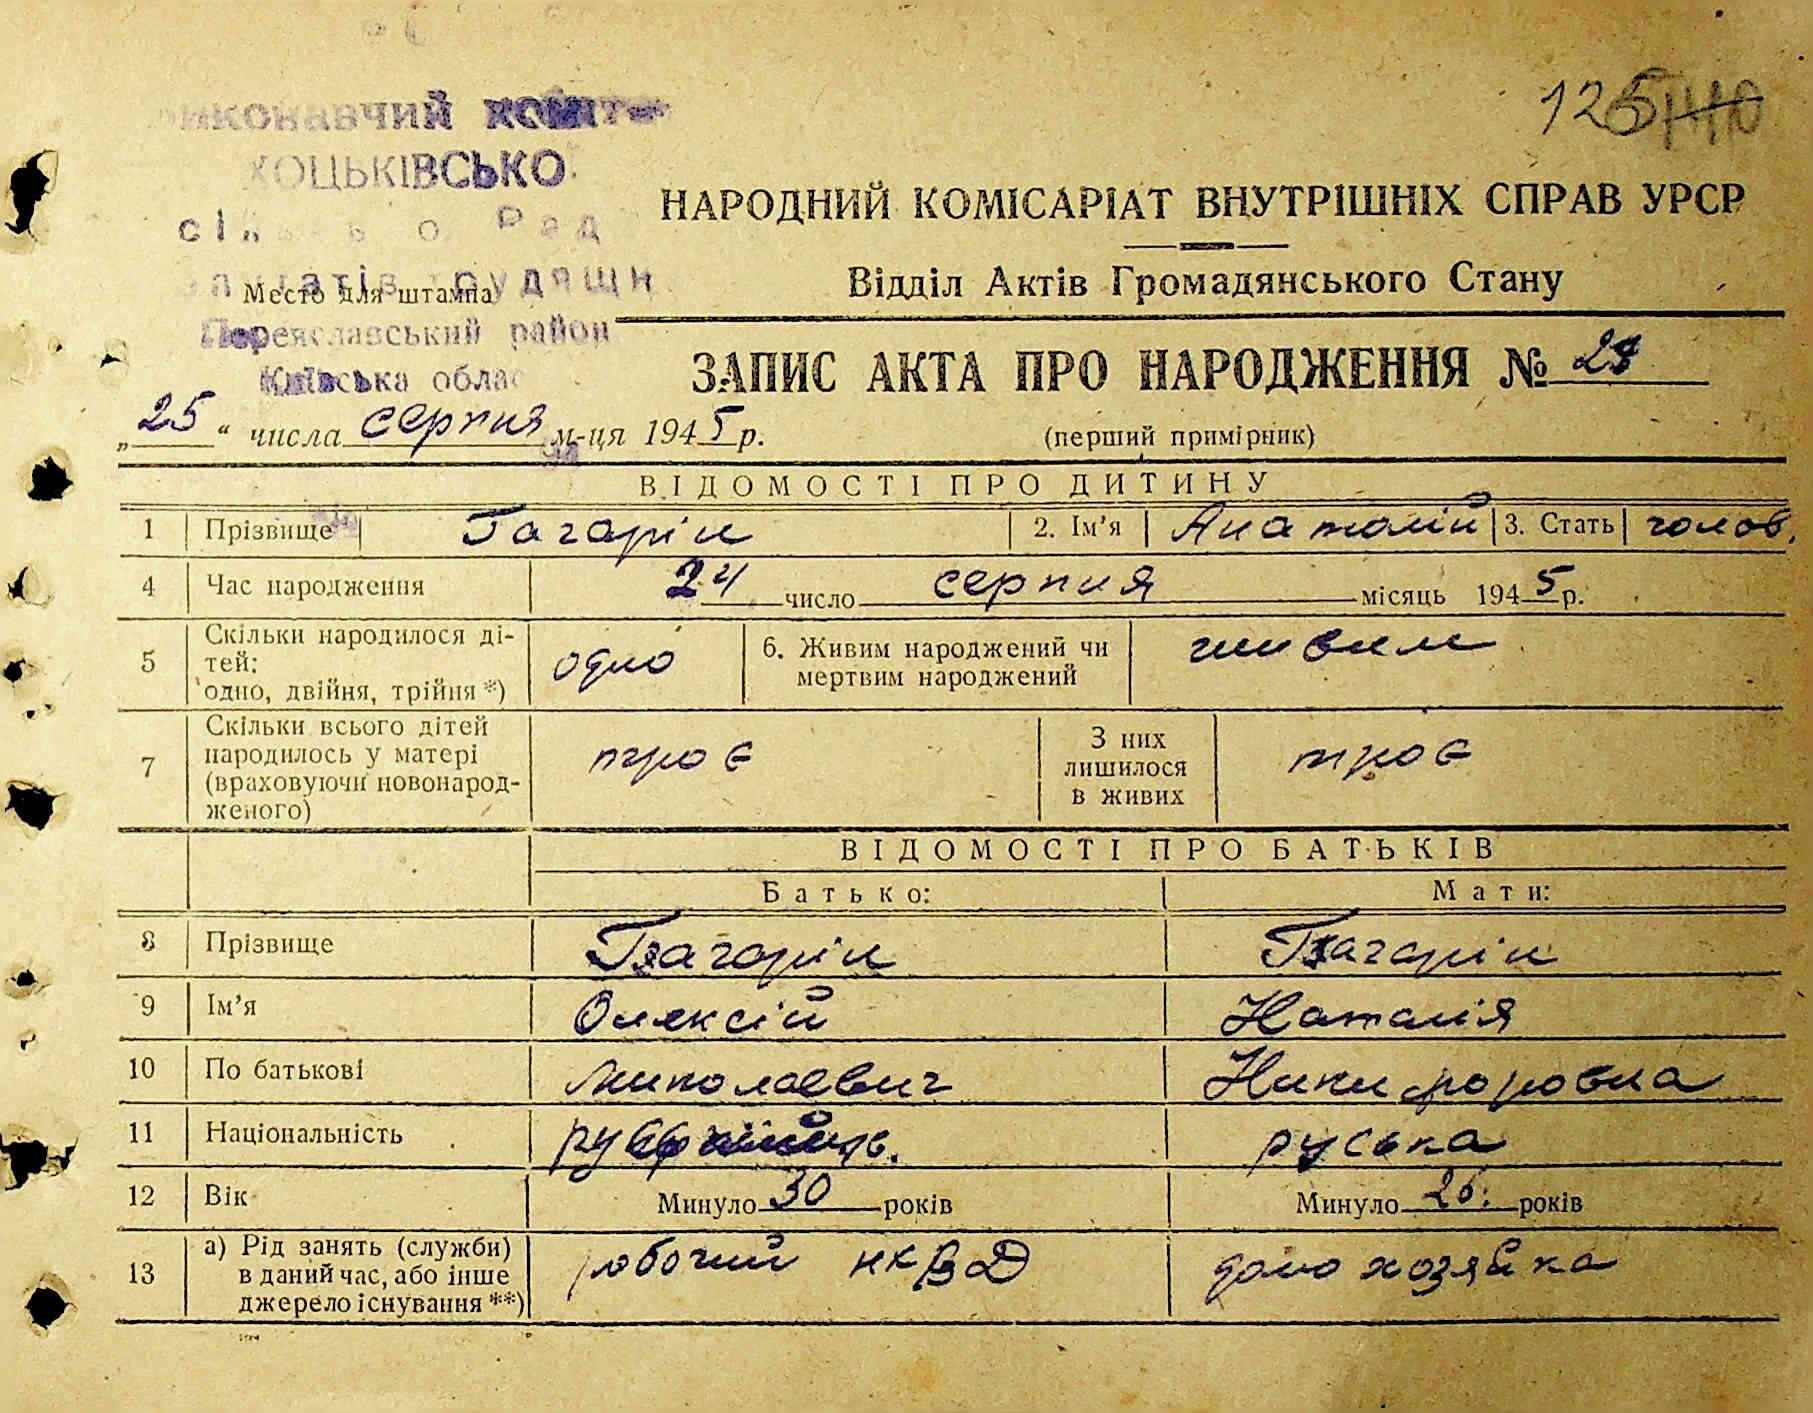 виконавчий коміт
ХОЦЬКІВСЬКО
125
НАРОДНИЙ КОМІСАРІАТ ВНУТРІШНІХ СПРАВ УРСР
Відділ Актів Громадянського Стану
Место для штампа
Переяславський район
Київська облас
ЗАПИС АКТА ПРО НАРОДЖЕННЯ №
„25“ числа серпня м-ця 1945 р.
(перший примірник)
ВІДОМОСТІ ПРО ДИТИНУ
1 Прізвище Гагарін 2. Ім’я Анатолій 3. Стать чолов.
4 Час народження 24 число серпня місяць 1945 р.
5 Скільки народилося ді-
тей:
одно, двійня, трійня *) одно 6. Живим народжений чи
мертвим народжений живим
7 Скільки всього дітей
народилось у матері
(враховуючи новонарод-
женого) троє З них
лишилося
в живих троє
ВІДОМОСТІ ПРО БАТЬКІВ
Батько: Мати:
8 Прізвище Гагарін Гагарін
9 Ім’я Олексій Наталія
10 По батькові Миколаевич Никифоровна
11 Національність руська
12 Вік Минуло 30 років Минуло 26. років
13 а) Рід занять (служби)
в даний час, або інше
джерело існування **) робочий НКВД домохозяйка